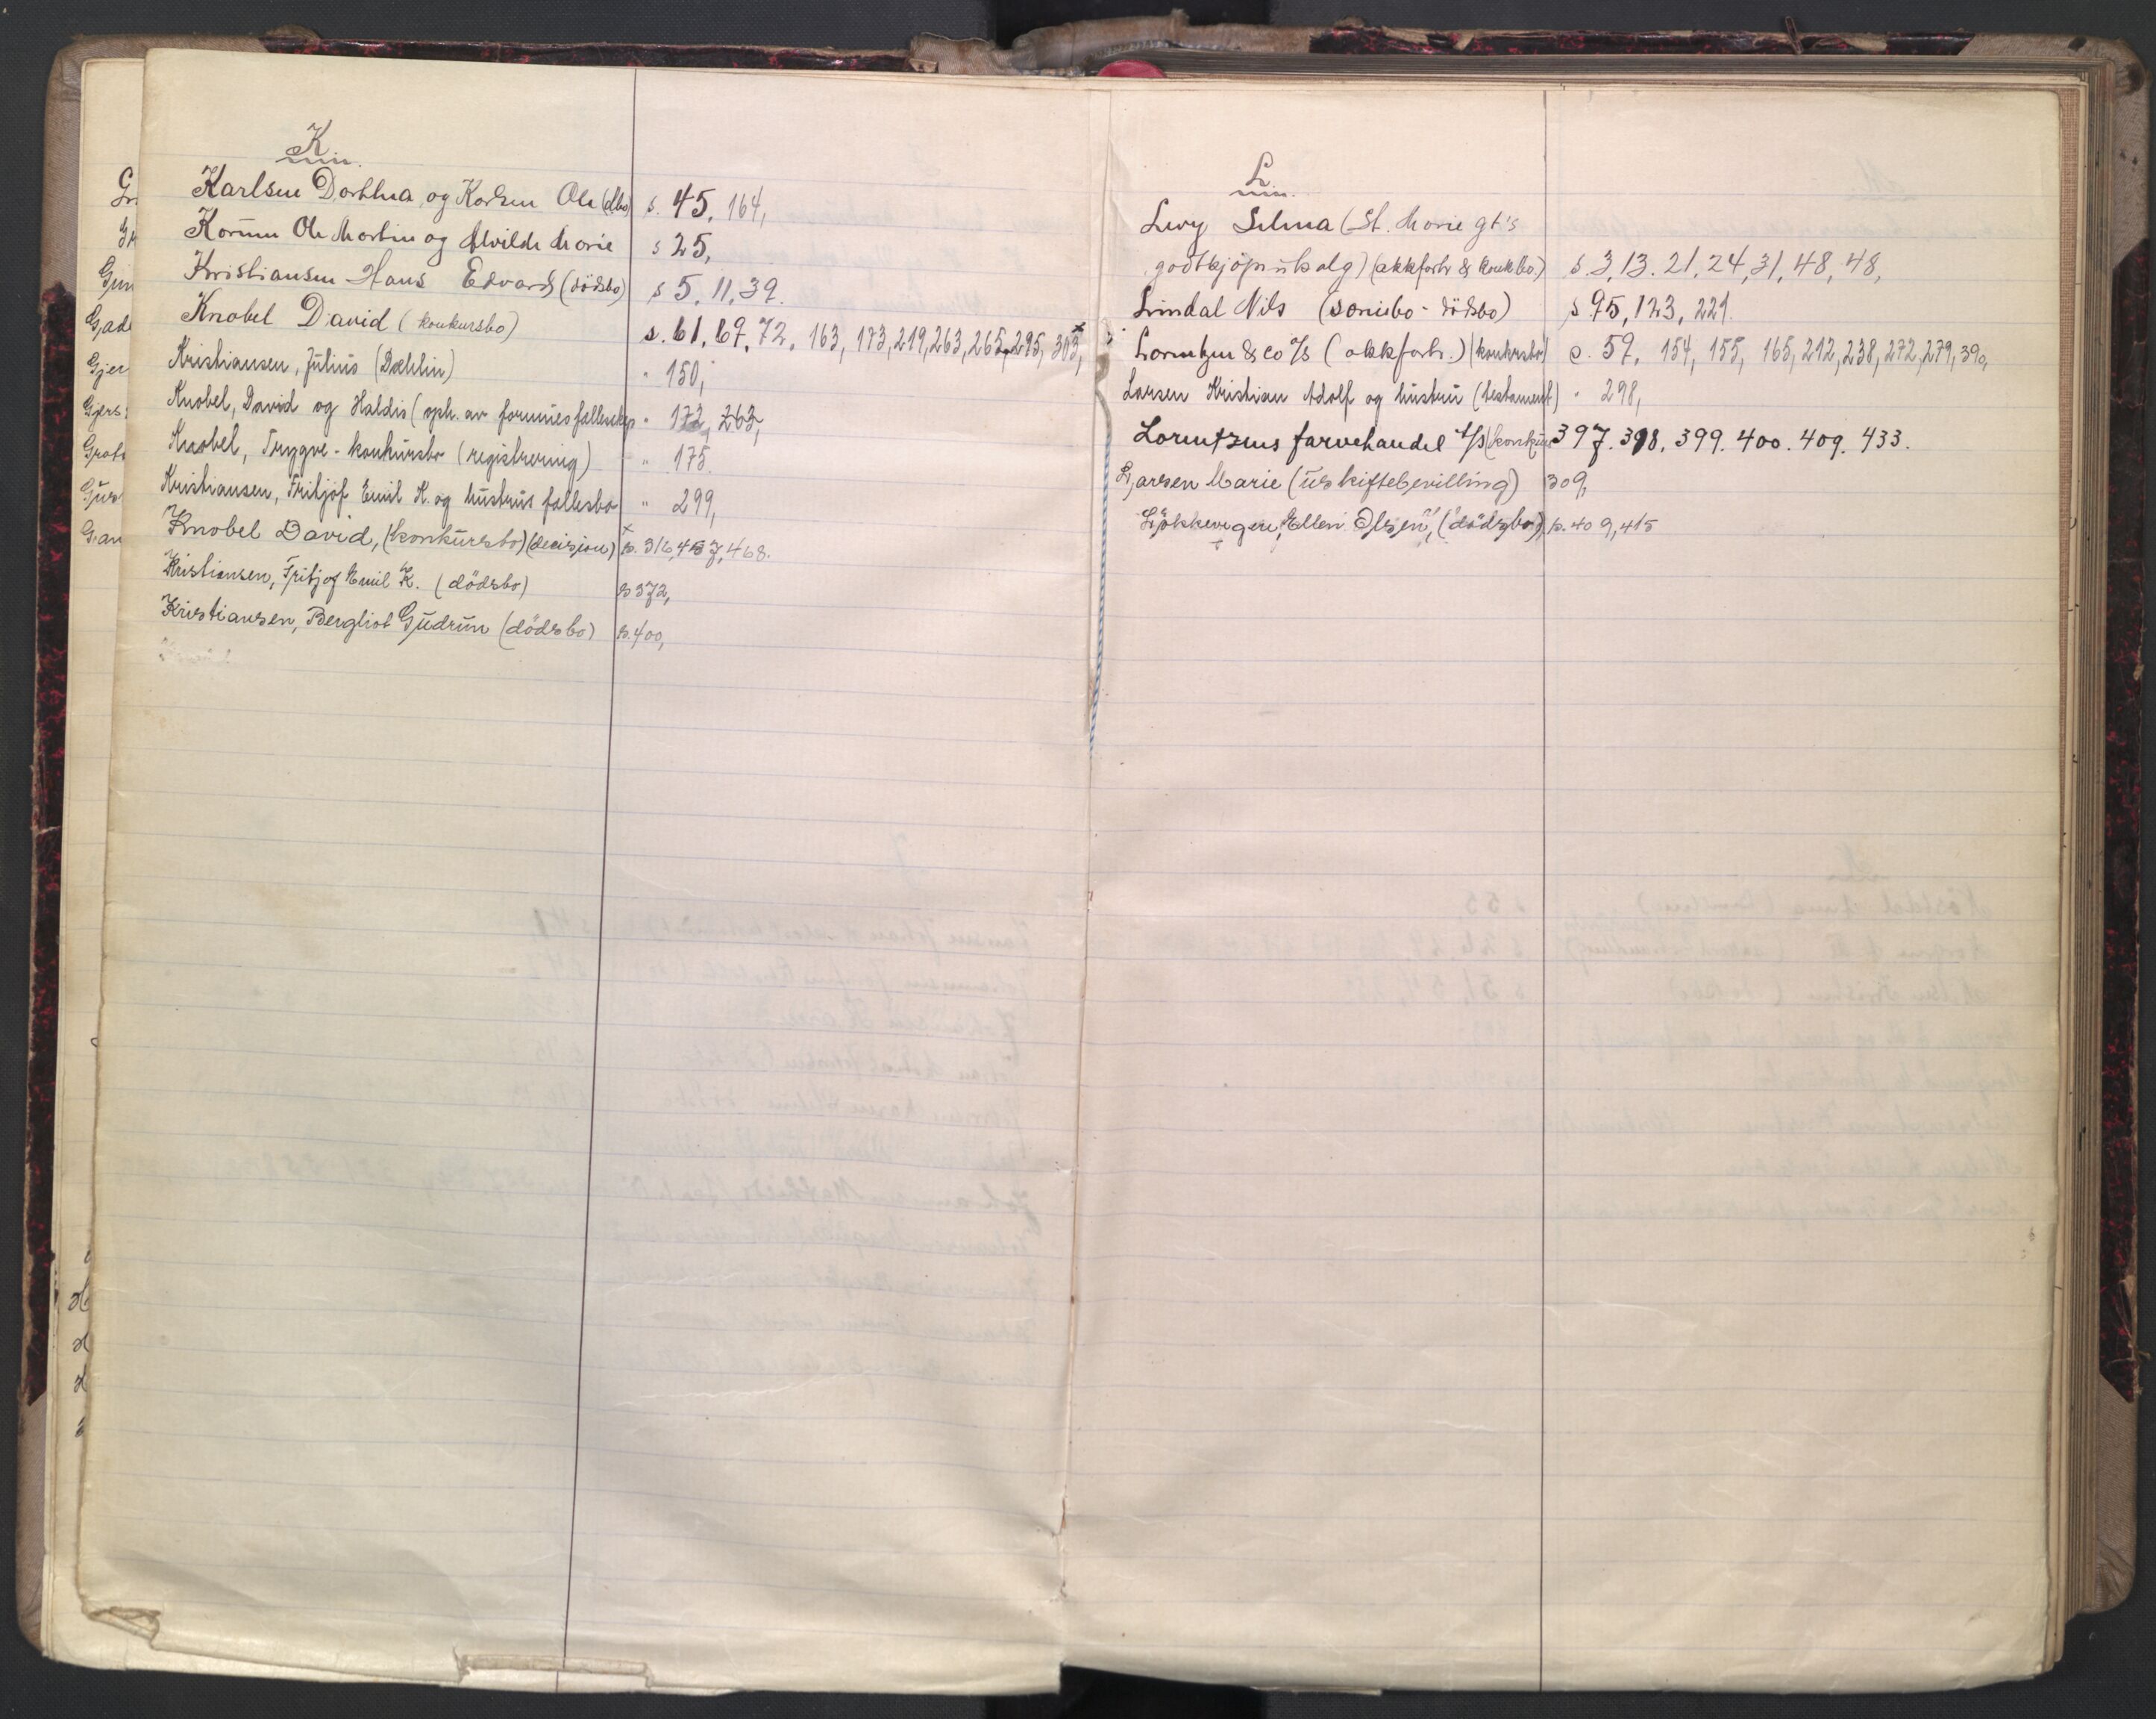 K
Karlsen Dorthea og Karlsen Ole (dbo) s. 45, 164,
Ole Martin og Alvilde Marie s 25,
Kristiansen Hans Edvard (dödsbo) s 5, 11, 39.
Knobel David (konkursbo) s. 61, 67, 72, 163, 173, 219, 263, 265, 295, 303,
Kristiansen, Julius (Dæhlin) " 150,
Knobel, David og Haldis (oph. av formuesfællesskap " 172, 263,
Knobel, Trygve - konkursbo (registrering) " 175.
Kristiansen, Fritjof Emil K. og hustrus fællesbo " 299,
Knobel David, (konkursbo) (decisjon) p. 316, 457, 468.
Kristiansen, Fritjof Emil K. (dödsbo) p 372,
Kristiansen, Bergliot Gudrun (dödsbo) p. 400,
L
Levy Selma (St. Marie gt's
godtkjöpsutsalg) (akkforh & konkbo) s. 3, 13. 21, 24, 31, 48, 48,
Lindal Nils (dödsbo) s 95, 123, 221.
Lorentzen & Co A/S (akkforh.) (konkursbo) s. 59, 154, 155, 165, 212, 238, 272, 279, 390,
Larsen Kristian Adolf og hustru (testament) " 298,
Lorentzens farvehandel A/S (konkurs 397. 398. 399. 400. 409. 433.
Larsen Marie (uskiftebevilling) 309,
Lökkevigen, Ellen Olsen, (dödsbo), p. 409, 415